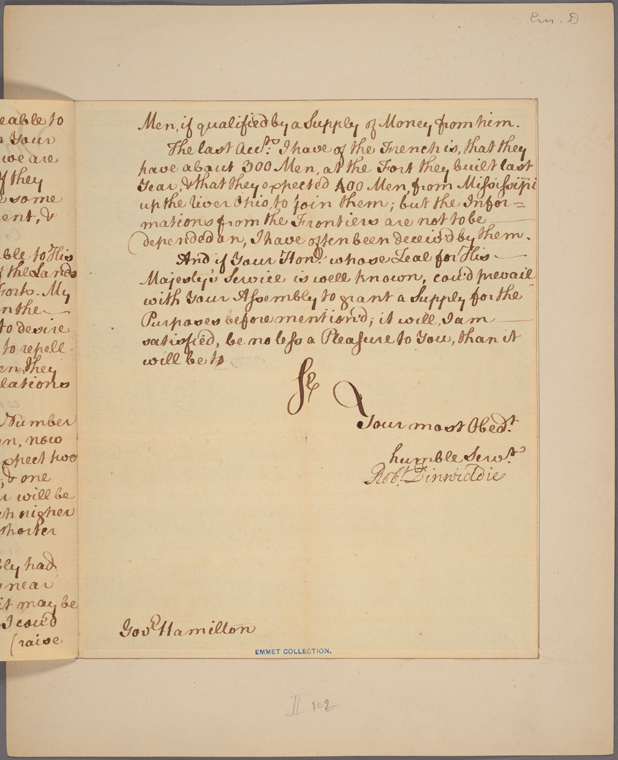 Em. D
eable to
Your
we are
If they
e some
ent, &
ble to His
f the Lands
Forts. My
in the
to desire
to repell
en, they
lations
Number
on, now
expect two
& one
r will be
ch higher
shorter
bly had
near
it may be
I cou'd
(raise
Men, if qualified by a Supply of Money from him.
The last Acct.s I have of the French is, that they
have about 300 Men, at the Fort they built last
Year, & that they expected 400 Men, from Missisipi
up the river Ohio, to join them; but the Infor=
mations from the Frontiers are not to be
depended on, I have often been deceiv'd by them.
And if Your Hon.r whose Zeal for His
Majesty's Service is well known, cou'd prevail
with Your Assembly to grant a Supply for the
Purposes before mention'd; it will, I am
satisfied, be no less a Pleasure to You, than it
will be to
Sr.
Your most Obed.t
humble Serv.t
Rob.t Dinwiddie
Gov.r Hamilton
EMMET COLLECTION.
II 102